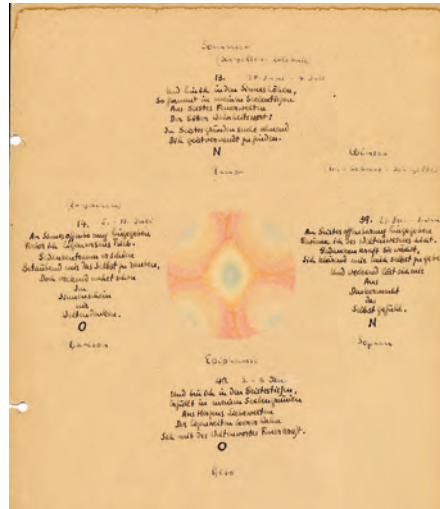 Sommer
13. 30. Juni - 6. Juli
Und bin ich in den Sinneshöhen,
So flammt in meinen Seelentiefen
Aus Geistes Feuerwelten
Der Götter Wahrheitswort:
In Geistesgründen suche ahnend
Dich geistverwandt zu finden.
N
Tenor
Winter
14. Juli
An Sinnesoffenbarung hingegeben
Verlor ich Eigenwesens Trieb.
Gedankentraum er schien
Betäubend mir das Selbst zu rauben,
Doch weckend nahet schon
Im
Sinnenschein
mir
Weltendenken.
O
Bariton
39.
An Geistesoffenbarung hingegeben
Gewinne ich des Weltenwesens Licht.
Gedankenkraft sie wächst,
Sich klärend mir mich selbst zu geben
Und weckend löst sich mir
Aus
Denkermacht
das
Selbstgefühl.
N
Sopran
Epiphanias
40. Jan.
Und bin ich in den Geistestiefen,
Erfüllt in meinen Seelengründen
Aus Herzens Liebewelten
Der Eigenheiten leerer Wahn
Sich mit des Weltenwortes Feuerkraft.
O